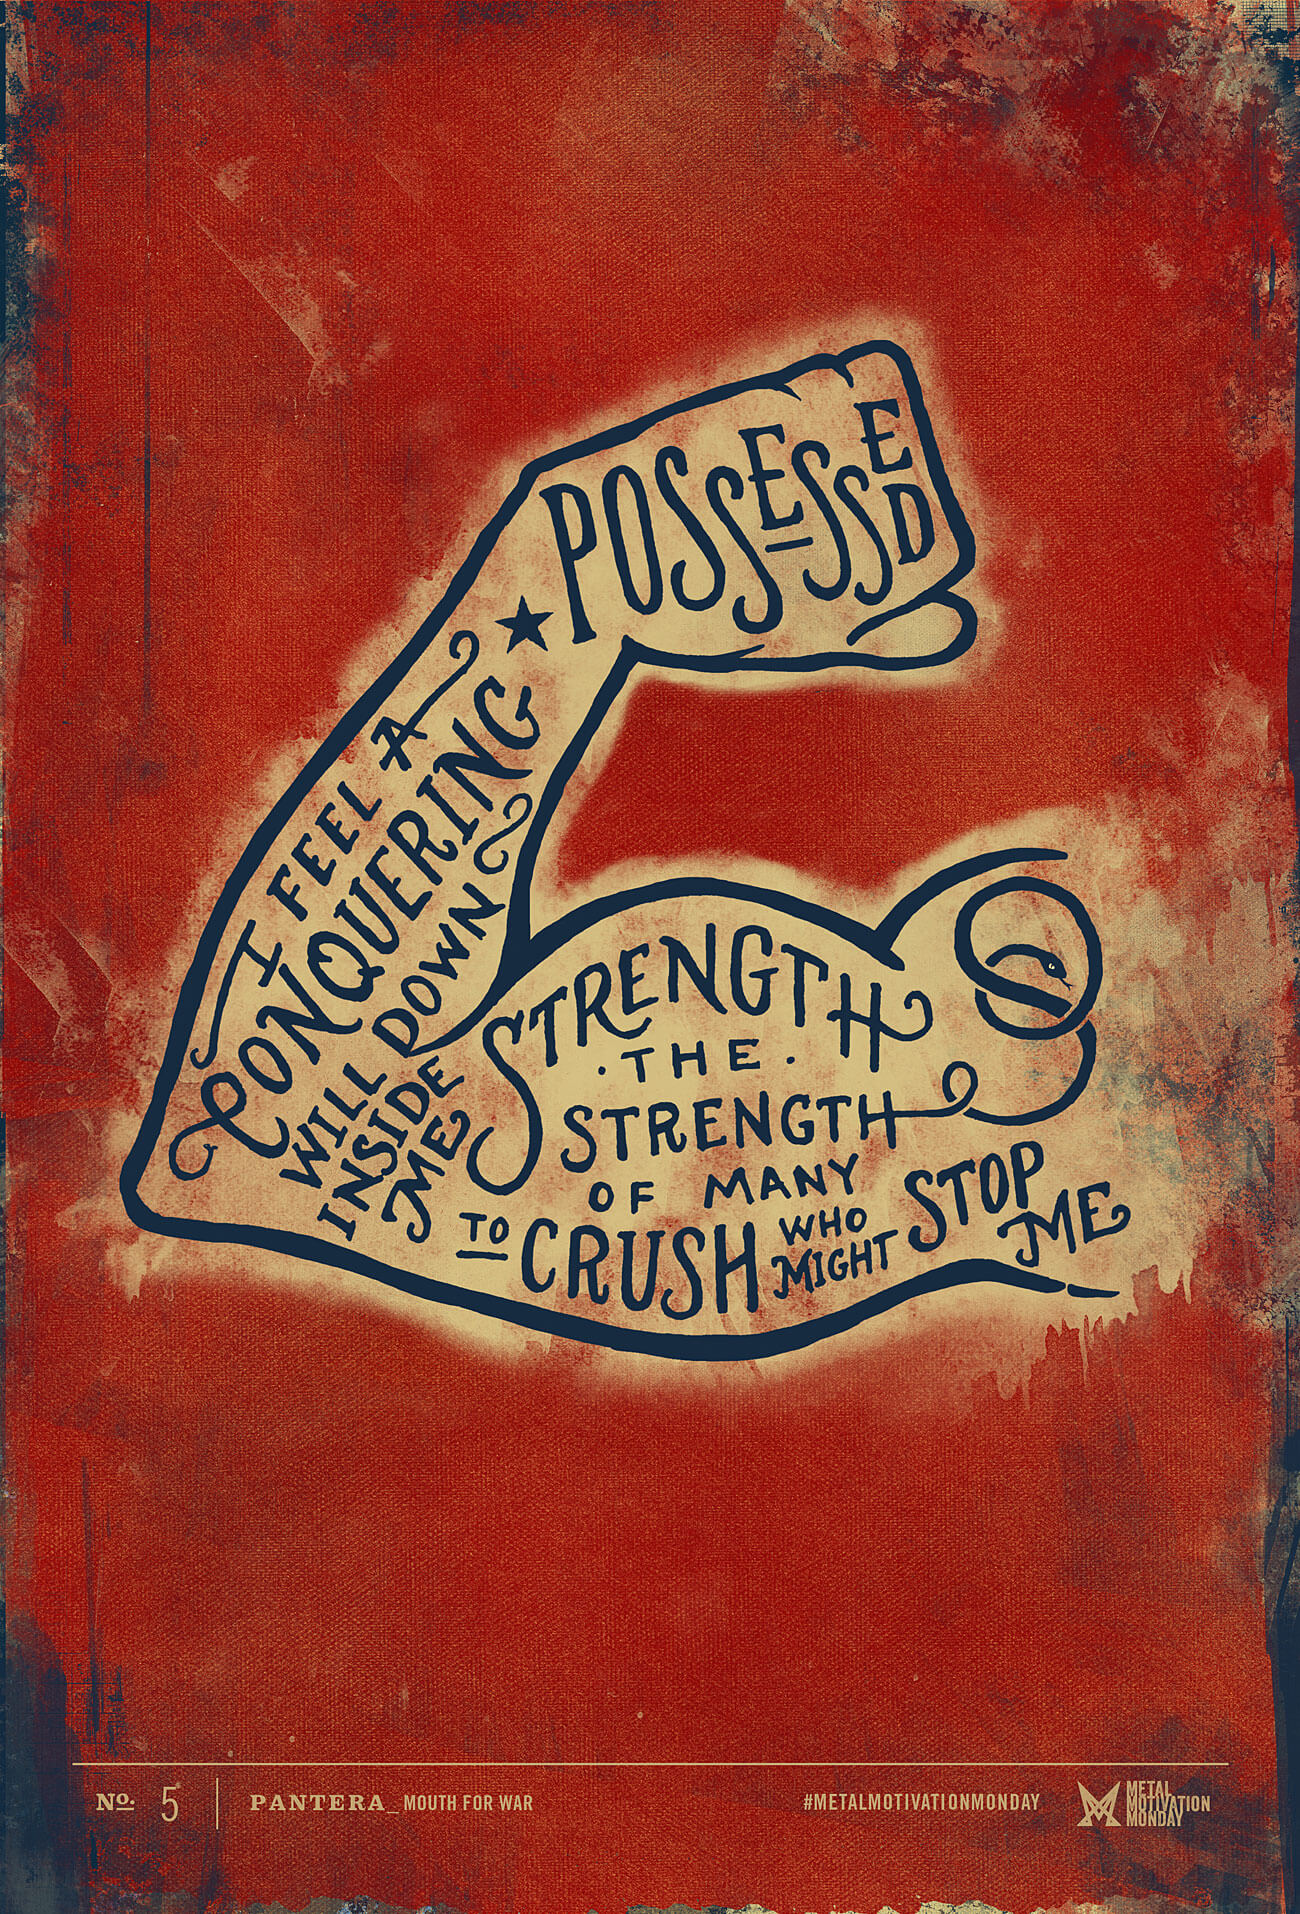 POSSESSED
I FEEL A
CONQUERING
WILL DOWN
INSIDE
ME
STRENGTH
·THE·
STRENGTH
OF MANY
TO CRUSH
WHO
MIGHT
STOP
ME
No. 5
PANTERA_MOUTH FOR WAR
#METALMOTIVATIONMONDAY
METAL
MOTIVATION
MONDAY